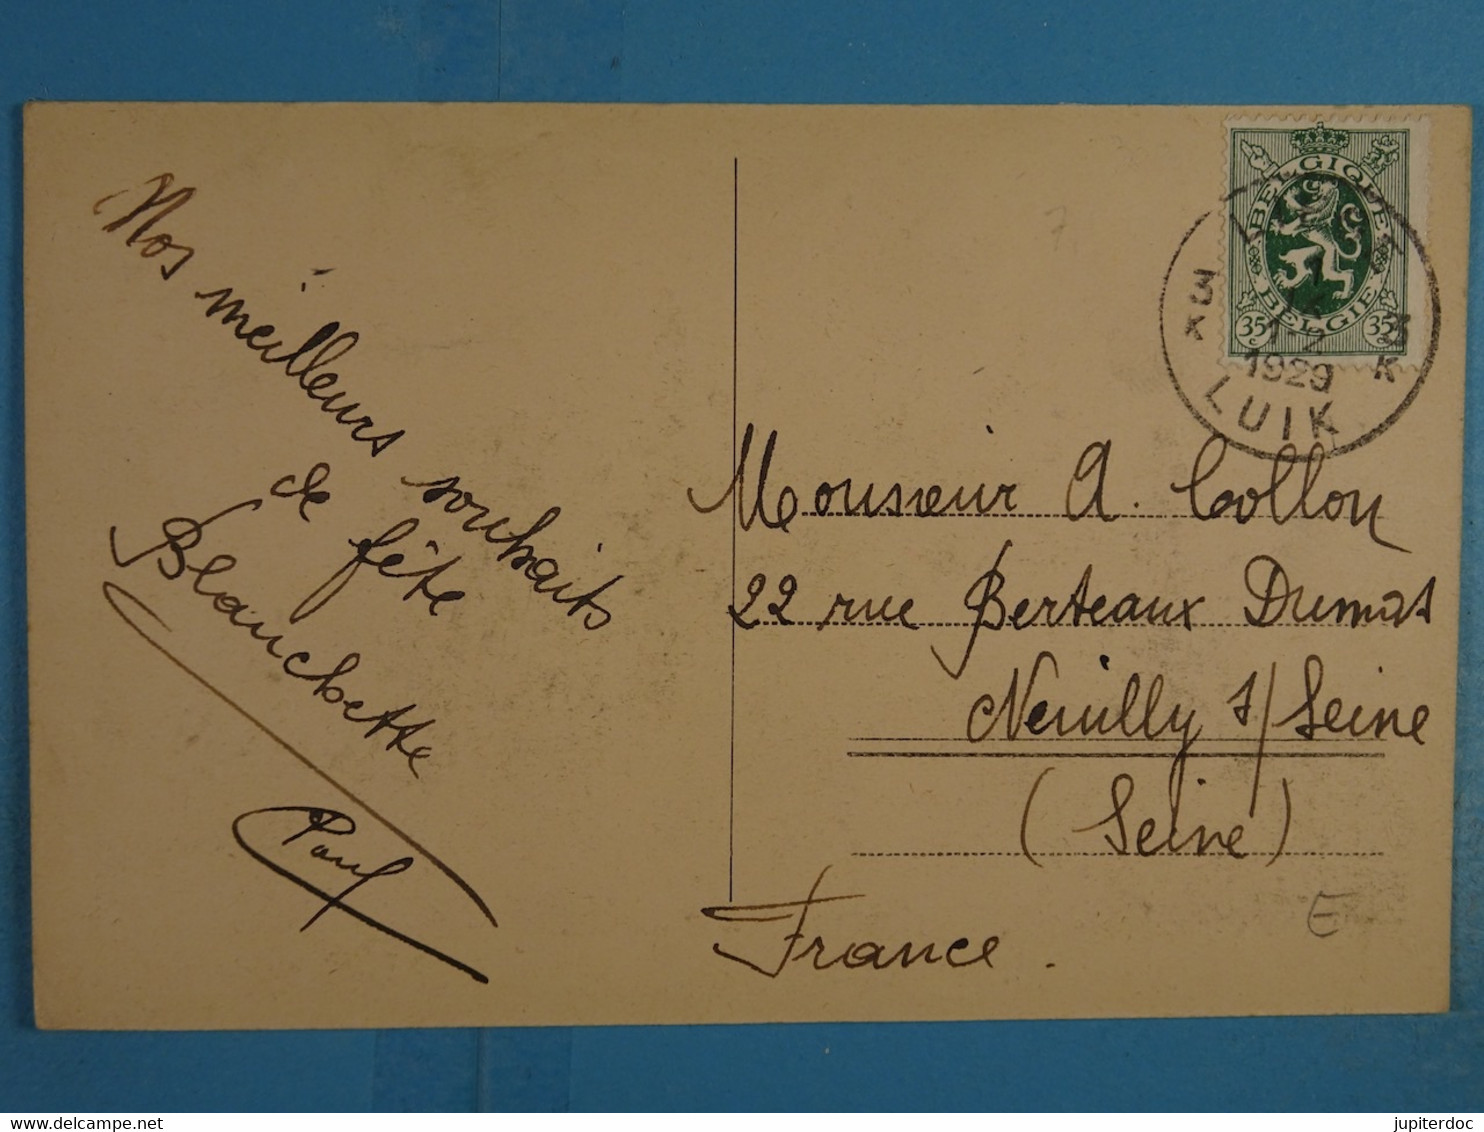 Nos meilleurs souhaits
de fête
Blanchette
Paul
BELGIQUE
BELGIE
35c 35c
3 3
K K
1-2
1929
LUIK
7
Monsieur A. Collon
22 rue Berteaux Dumas
Neuilly s/Seine
(Seine)
France.
E
delcampe.net
jupiterdoc